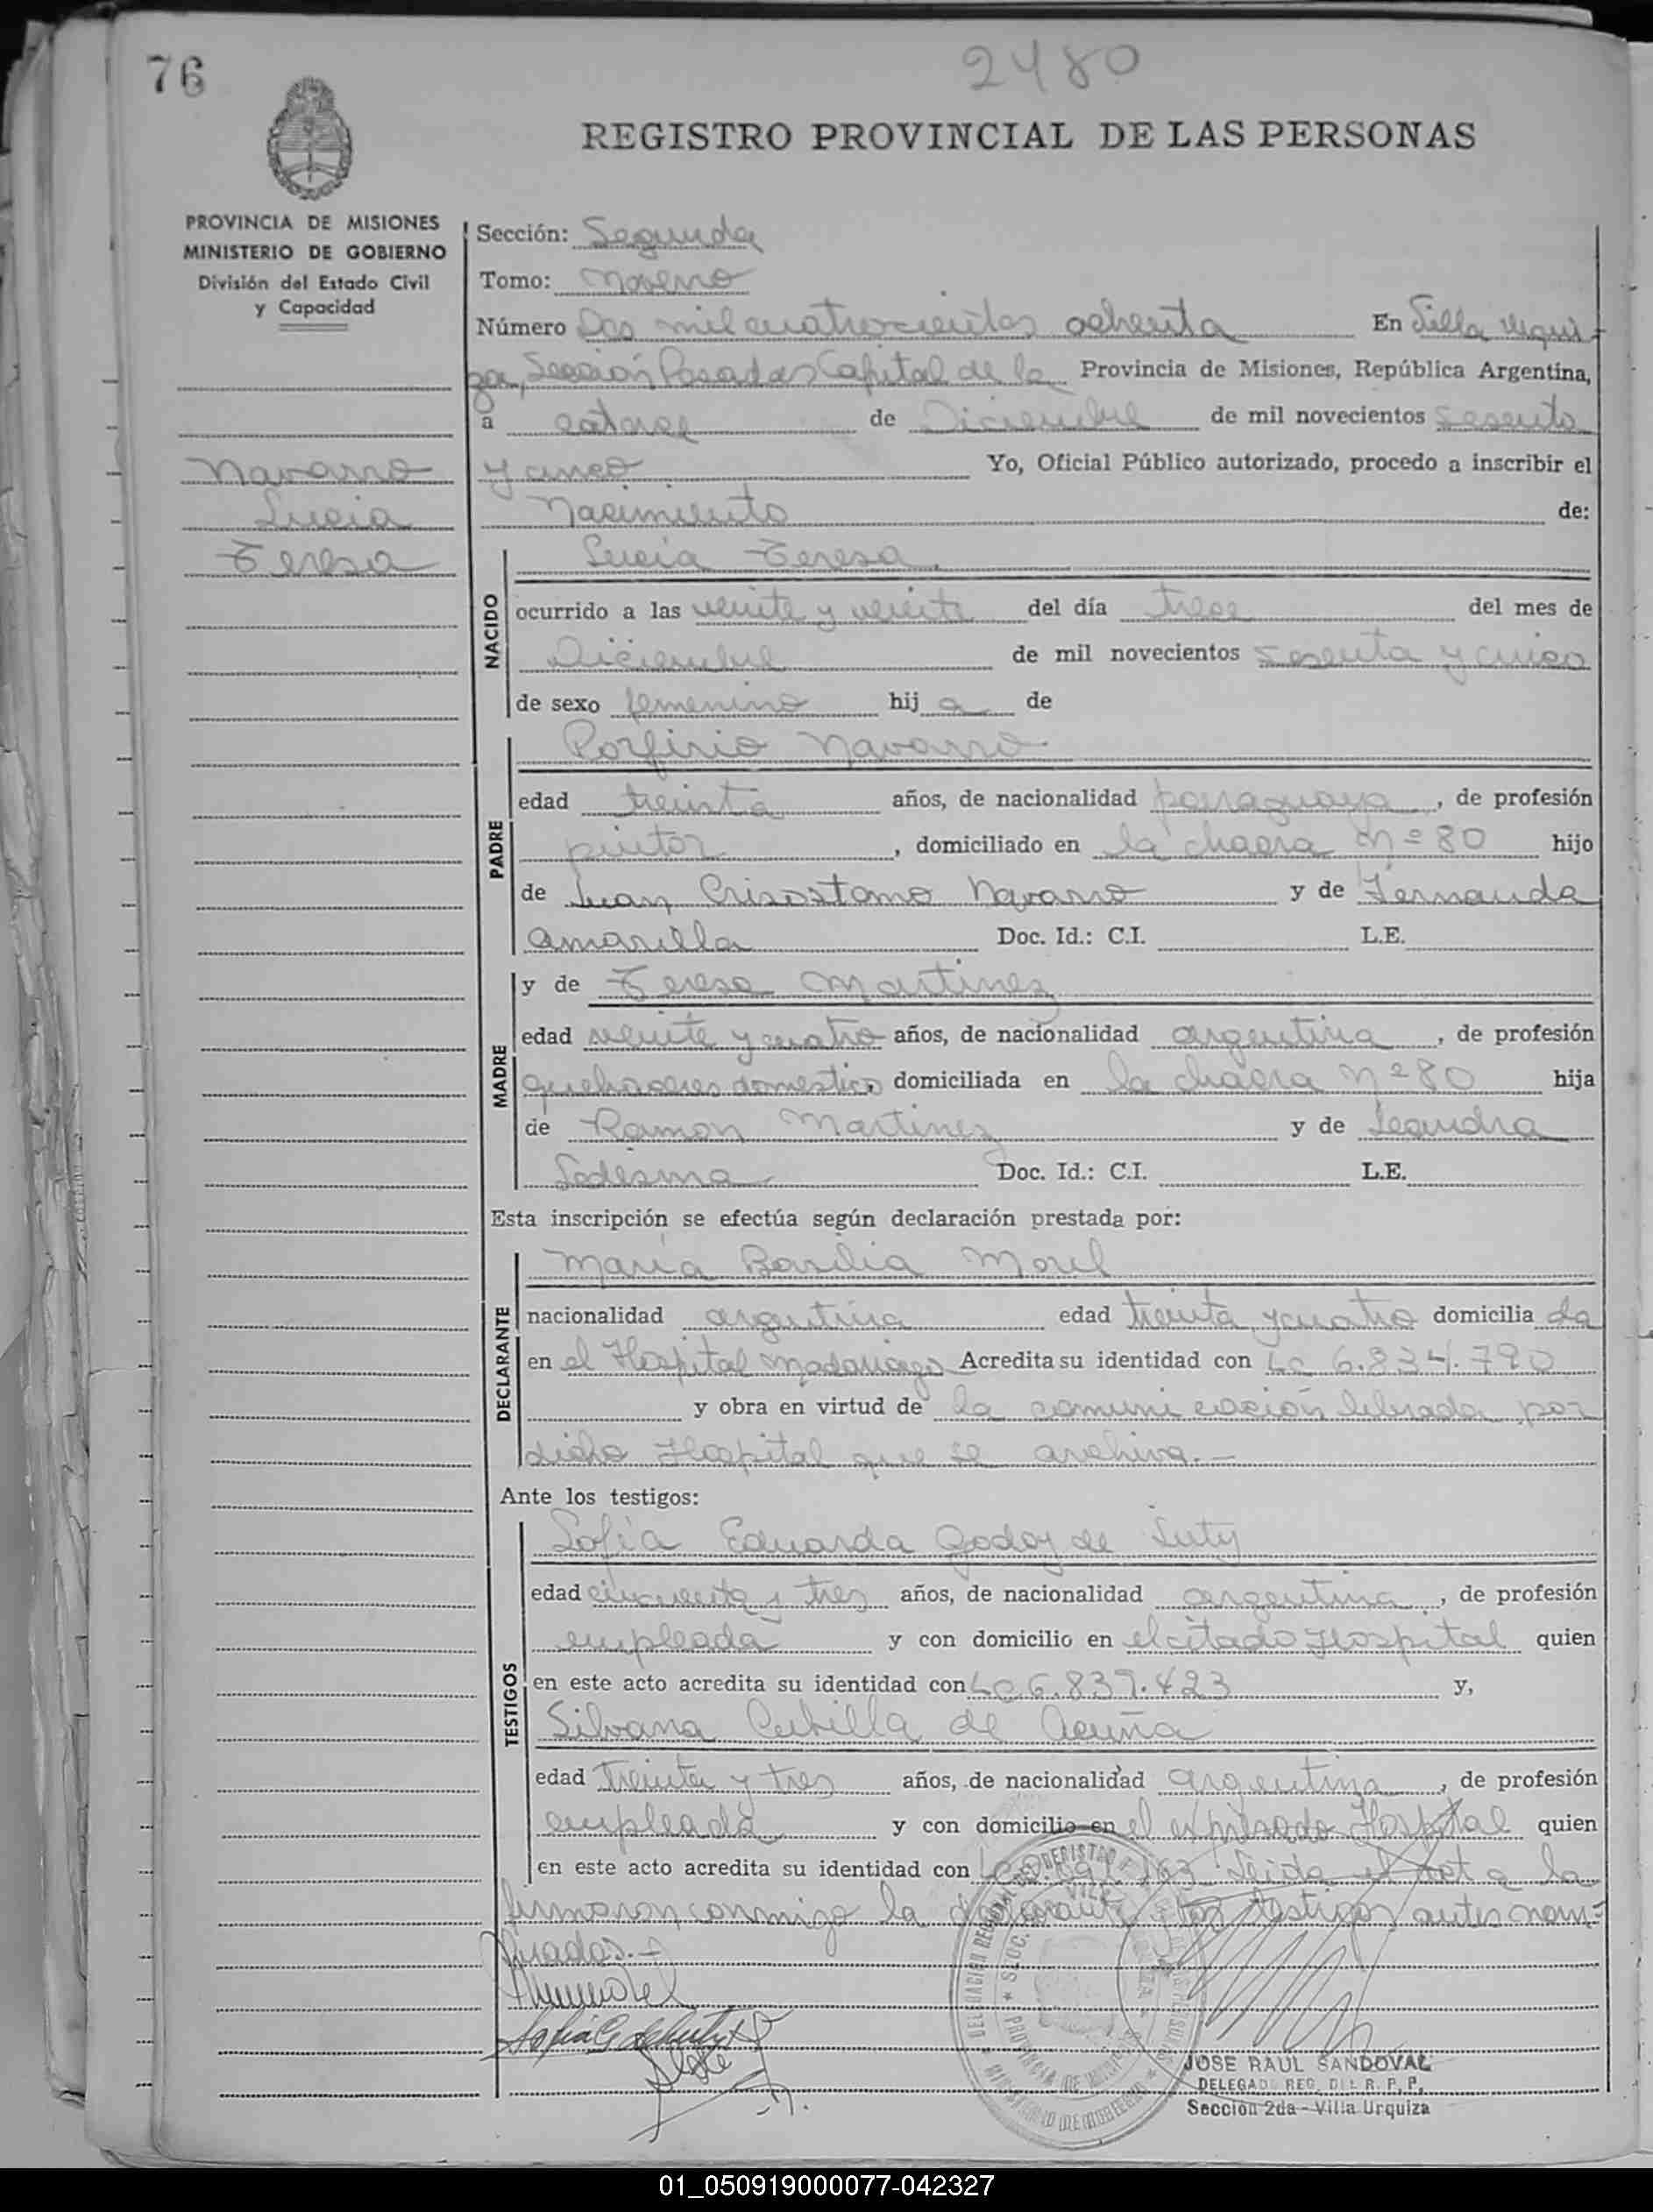 76
2480
REGISTRO PROVINCIAL DE LAS PERSONAS
PROVINCIA DE MISIONES
MINISTERIO DE GOBIERNO
División del Estado Civil
y Capacidad
Navarro
Lucia
Teresa
Sección: Segunda
Tomo: Noveno
Número Dos mil cuatrocientos ochenta En Villa Urqui-
za, Sección Posadas Capital de la Provincia de Misiones, República Argentina,
a catorce de Diciembre de mil novecientos sesenta
y cinco Yo, Oficial Público autorizado, procedo a inscribir el
Nacimiento de:
NACIDO
Lucía Teresa.
ocurrido a las veinte y veinte del día trece del mes de
Diciembre de mil novecientos sesenta y cinco
de sexo femenino hij a de
PADRE
Porfirio Navarro
edad treinta años, de nacionalidad paraguaya, de profesión
pintor, domiciliado en la chacra nº 80 hijo
de Juan Crisostomo Navarro y de Fernanda
Amarilla Doc. Id.: C.I. L.E.
MADRE
y de Teresa Martinez
edad veinte y cuatro años, de nacionalidad argentina, de profesión
quehaceres domestico domiciliada en la chacra nº 80 hija
de Ramon Martinez y de Leandra
Ledesma Doc. Id.: C.I. L.E.
Esta inscripción se efectúa según declaración prestada por:
DECLARANTE
María Basilia Morel
nacionalidad argentina edad treinta y cuatro domicilia da
en el Hospital Madariaga Acredita su identidad con Lc 6.834.790
y obra en virtud de la comunicación librada por
dicho Hospital que se archiva.-
Ante los testigos:
TESTIGOS
Sofía Eduarda Godoy de
edad cincuenta y tres años, de nacionalidad argentina, de profesión
empleada y con domicilio en el citado Hospital quien
en este acto acredita su identidad con Lc 6.837.423 y,
Silvana Cubilla de Acuña
edad treinta y tres años, de nacionalidad argentina, de profesión
empleada y con domicilio en el expresado Hospital quien
en este acto acredita su identidad con Leida el acta la
firmaron conmigo la declarante y los testigos antes nom-
brados.-
JOSE RAUL SANDOVAL
DELEGADO REG. DEL R. P. P.
Sección 2da - Villa Urquiza
01_050919000077-042327